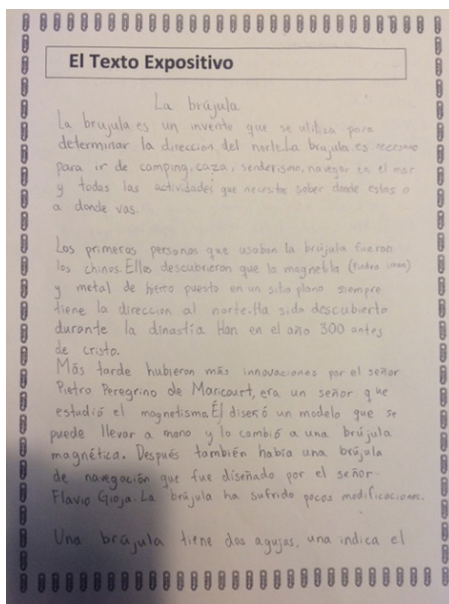 El Texto Expositivo
La brújula
La brujula es un invento que se utiliza para
determinar la direccion del norte.La brujula es necesario
para ir de camping, caza, senderismo, navegar en el mar
y todas las actividades que necesita saber donde estas o
a donde vas.
Las primeras personas que usaban la brújula fueron
los chinos. Ellos descubrieron que la magnetita (Piedra iman)
y metal de hierro puesto en un sitio plano siempre
tiene la direccion al norte. Ha sido descubierto
durante la dinastía Han en el año 300 antes
de cristo.
Más tarde hubieron más innovaciones por el señor
Pietro Peregrino de Maricourt, era un señor que
estudió el magnetismo. Él diseñó un modelo que se
puede llevar a mano y lo cambió a una brújula
magnética. Después también había una brújula
de navegación que fue diseñado por el señor
Flavio Gioja. La brújula ha sufrido pocas modificaciones.
Una brújula tiene dos agujas, una indica el